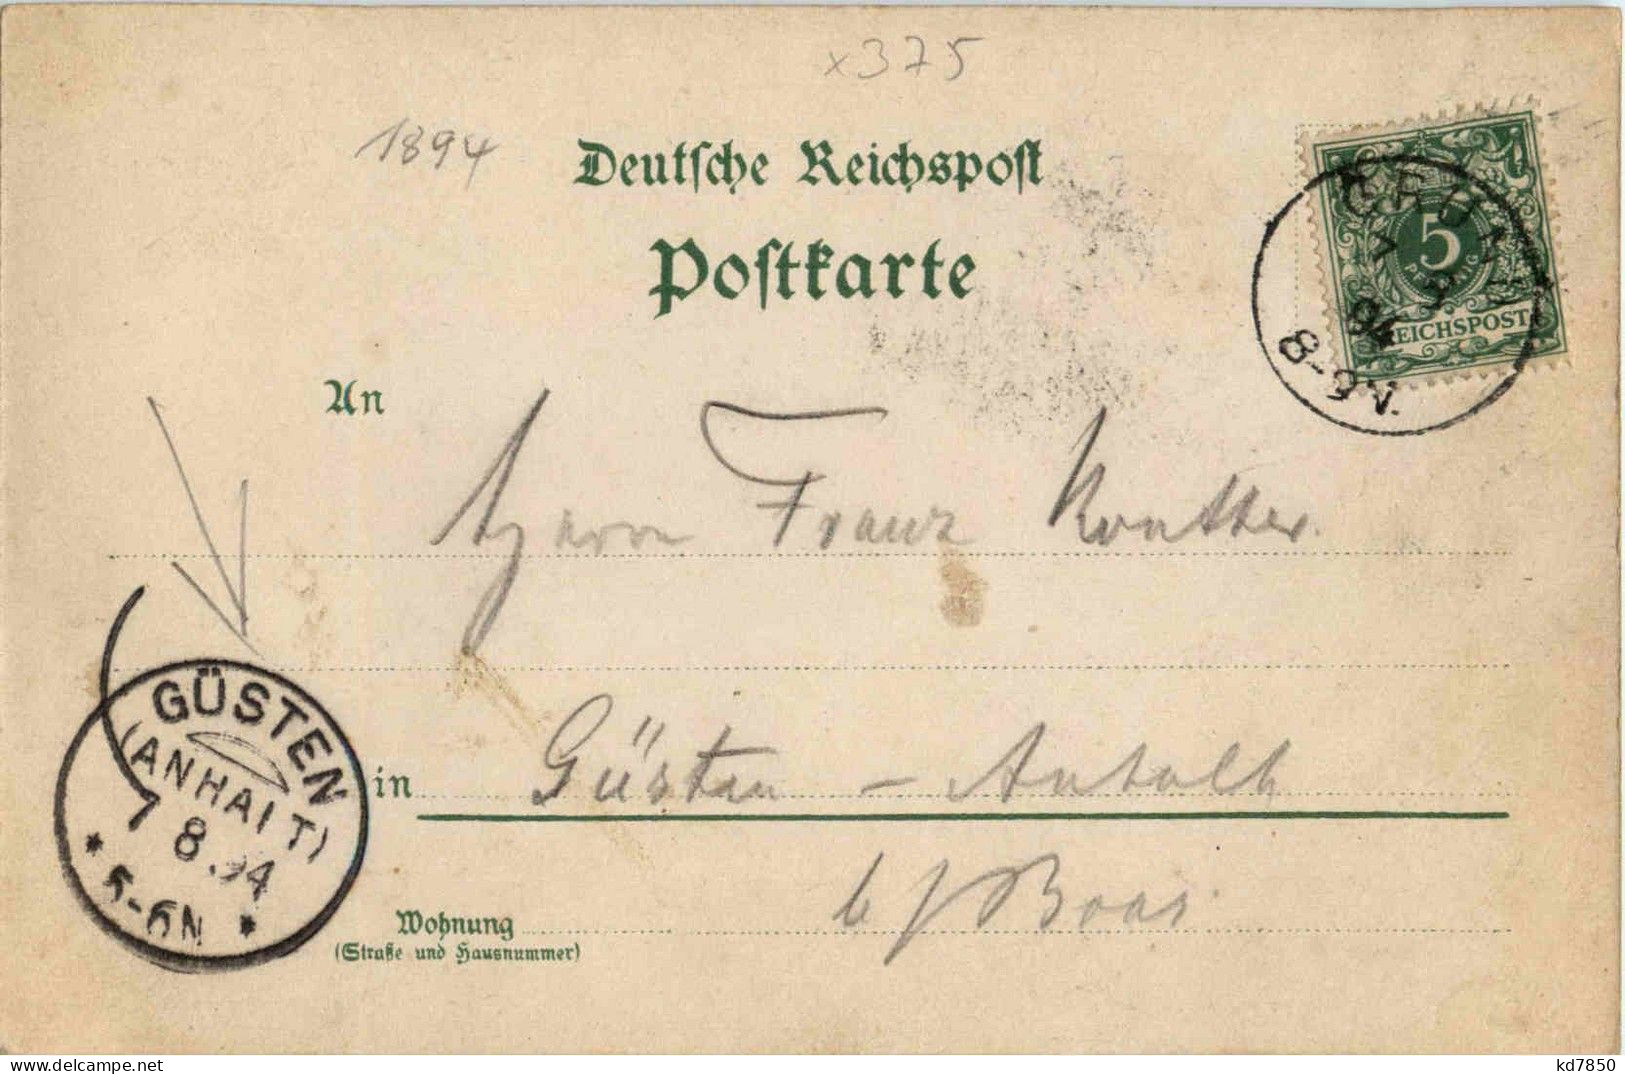 x375
1894
Deutsche Reichspost
Postkarte
GRUND
7 8
94
8-9V.
5
PFENNIG
REICHSPOST
An
Herrn Franz
GÜSTEN
(ANHALT)
7 8.94
* 5-6N *
in Güsten - Anhalt
b/
Wohnung
(Straße und Hausnummer)
delcampe.net
kd7850